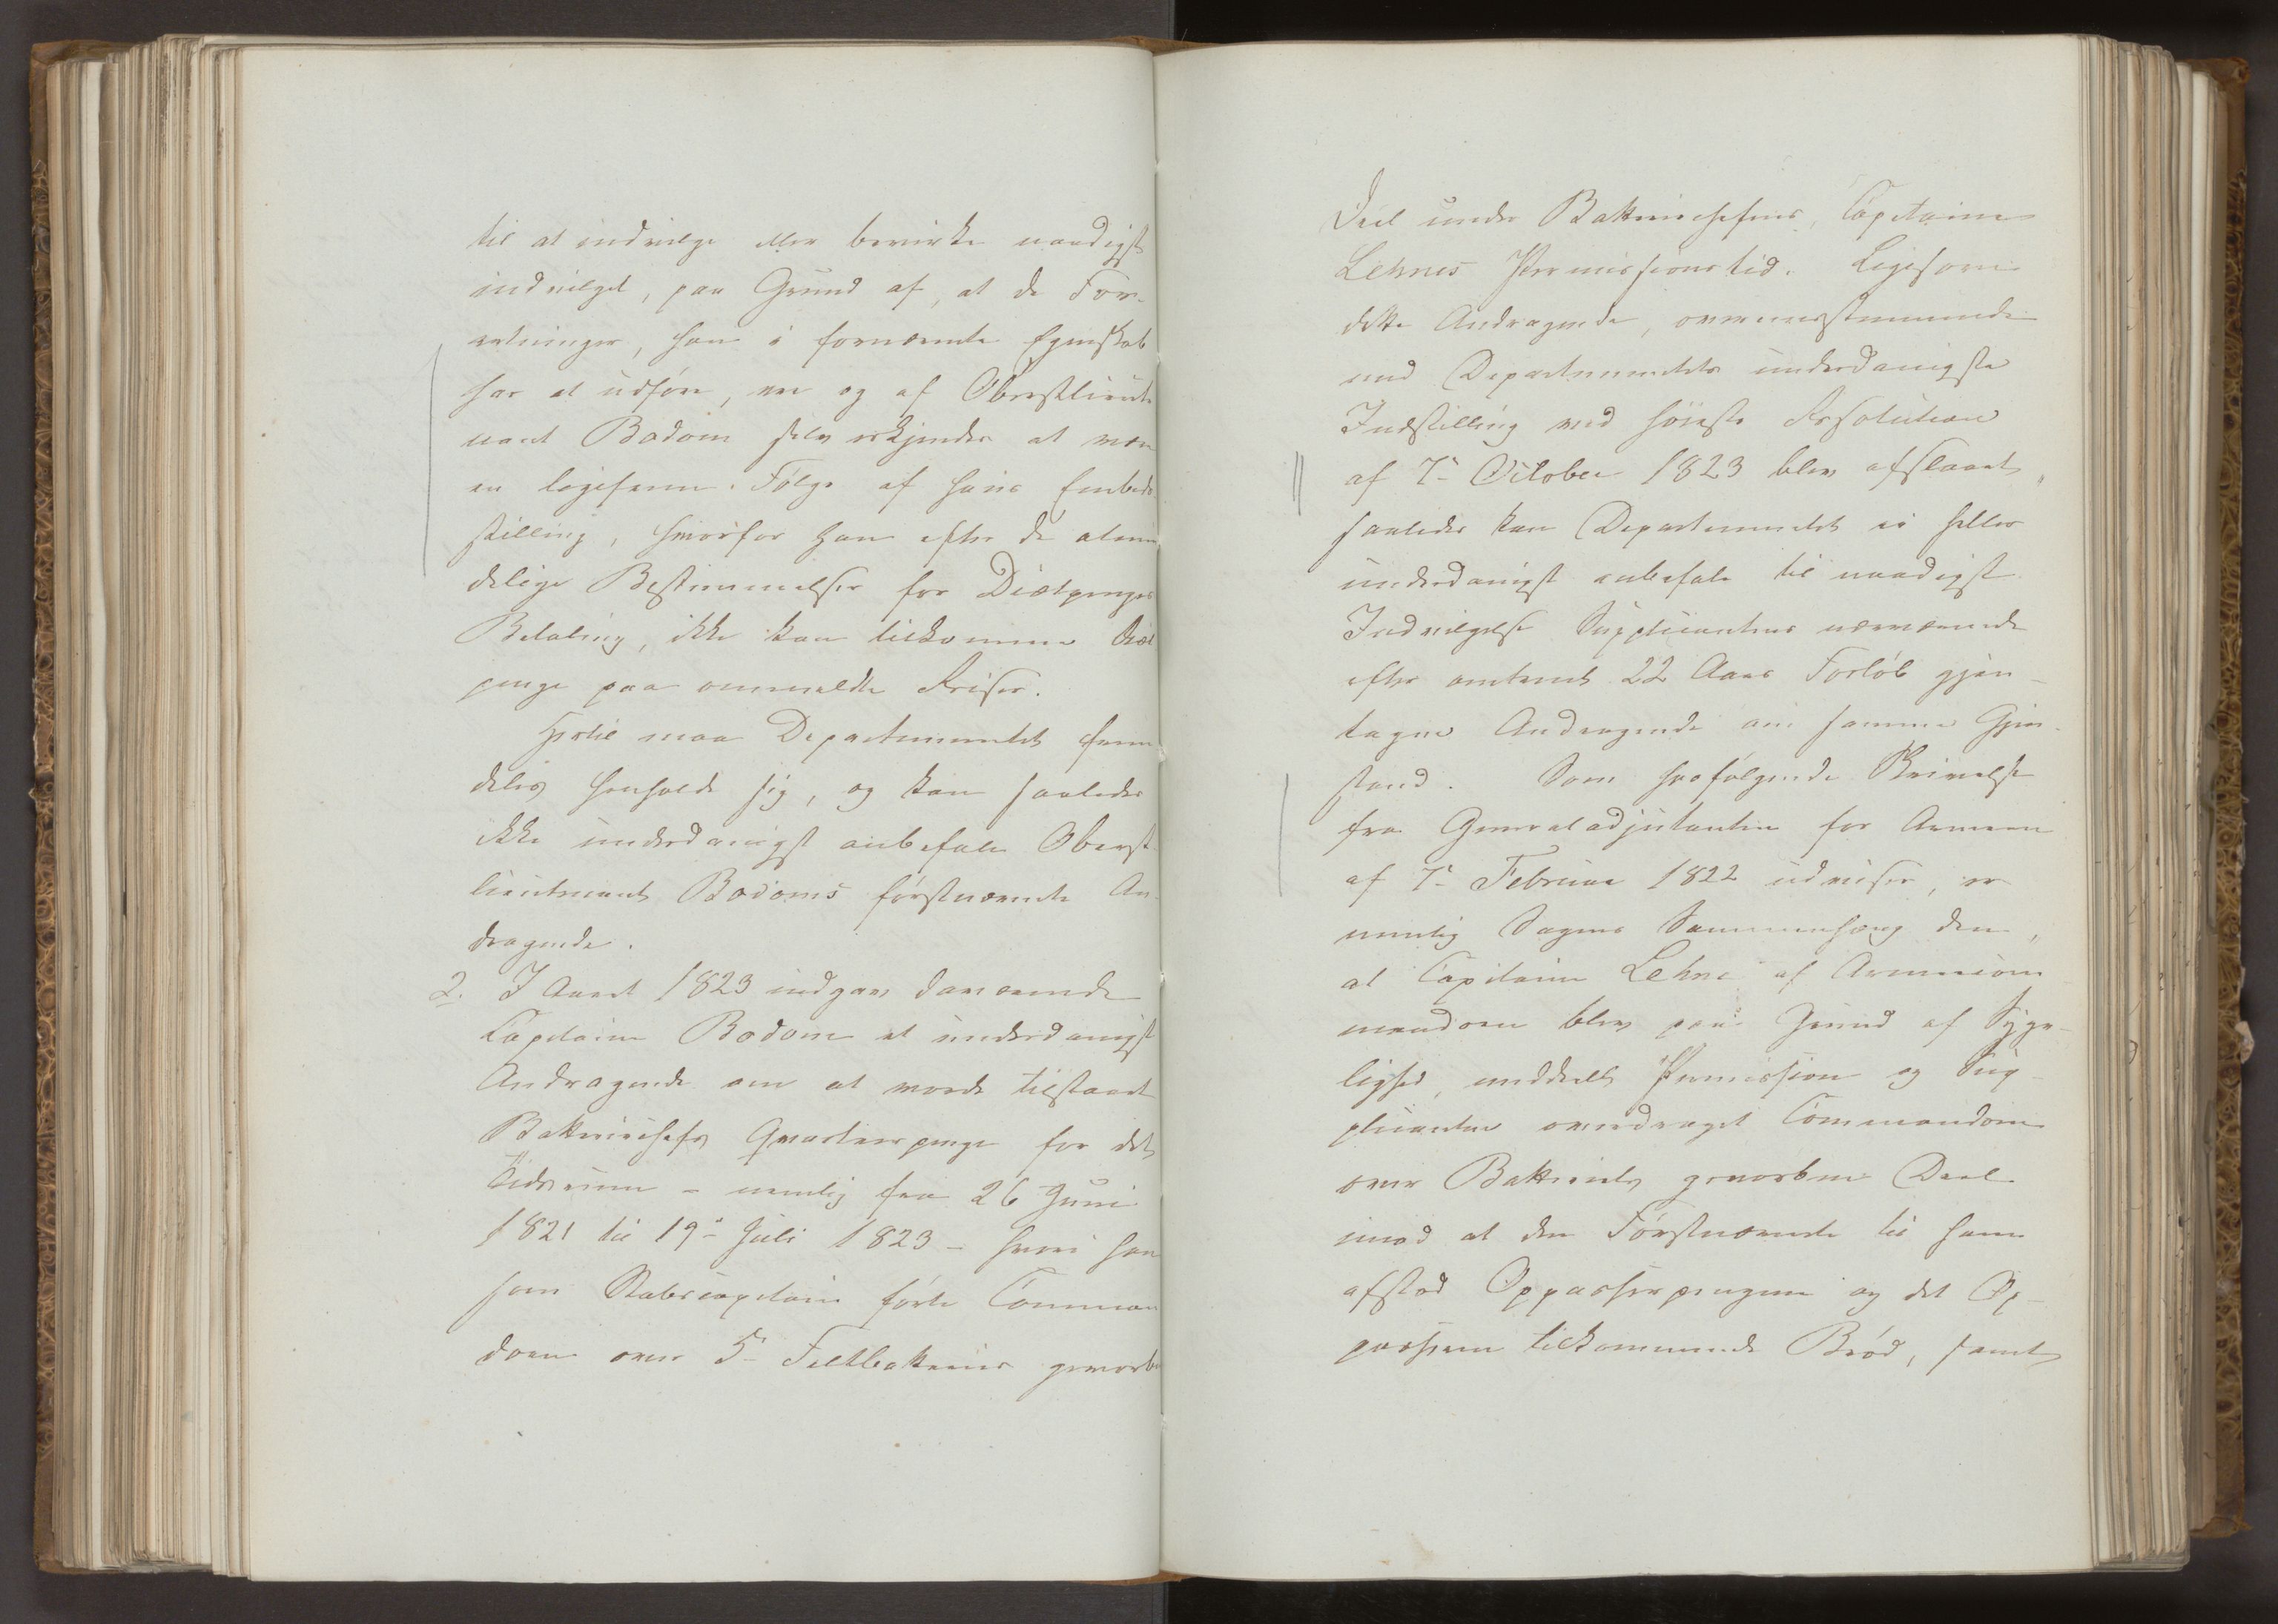 til at indvilge eller bevirke naadigst
indvilget, paa Grund af, at de For-
retninger, han i fornævnte Egenskab
har at udføre, ere og af Oberstlieute
nant Bodom selv erkjendes at være
en ligefrem Følge af hans Embeds
stilling, hvorfor han efter de almin
delige Bestemmelser for Diætpenges
Betaling, ikke kan tilkomme Diæt
penge paa ommeldte Reiser.
Hertil maa Departementet frem
deles henholde sig, og kan saaledes
ikke underdanigst anbefale Oberst
lieutenant Bodoms førstnævnte An-
dragende.
2. I Aaret 1823 indgav daværende
Capitaine Bodom et underdanigst
Andragende om at vorde tilstaaet
Batteriechefs Qvarteerpenge for det
Tidsrum - nemlig fra 26 Juni
1821 til 19de Juli 1823 - hvori han
som Stabscapitain førte Comman
doen over 5te Feltbatteries hvervede
Deel under Batteriechefens, Capitaine
Lehnes Permissionstid. Ligesom
dette Andragende, overensstemmende
med Departementets underdanigste
Indstilling ved høieste Resolution
af 7de October 1823 blev afslaaet,
saaledes kan Departementet ei heller
underdanigst anbefale til naadigst
Indvilgelse Supplicantens nærværende
efter omtrent 22 Aars Forløb gjen-
tagne Andragende om samme Gjen-
stand. Som hosfølgende Skrivelse
fra Generaladjutanten for Armeen
af 7de Februar 1822 udviser, er
nemlig Sagens Sammenhæng den,
at Capitaine Lehne af
blev paa Grund af Syge-
lighed meddeelt Permission og Sup-
plicanten overdraget Commandoen
over Batteriets hvervede Deel
imod at den Førstnævnte til ham
afstod Oppasserpengene og det Op-
passeren tilkommende Brød, samt